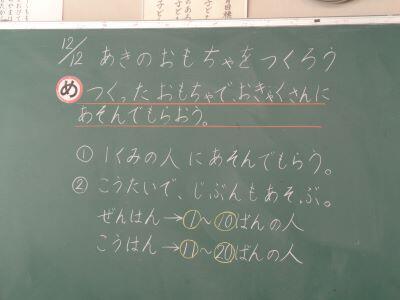 12/12 あきのおもちゃをつくろう
め つくったおもちゃで、おきゃくさんに
あそんでもらおう。
① 1くみの人にあそんでもらう。
② こうたいで、じぶんもあそぶ。
ぜんはん→①〜⑩ばんの人
こうはん→⑪〜⑳ばんの人